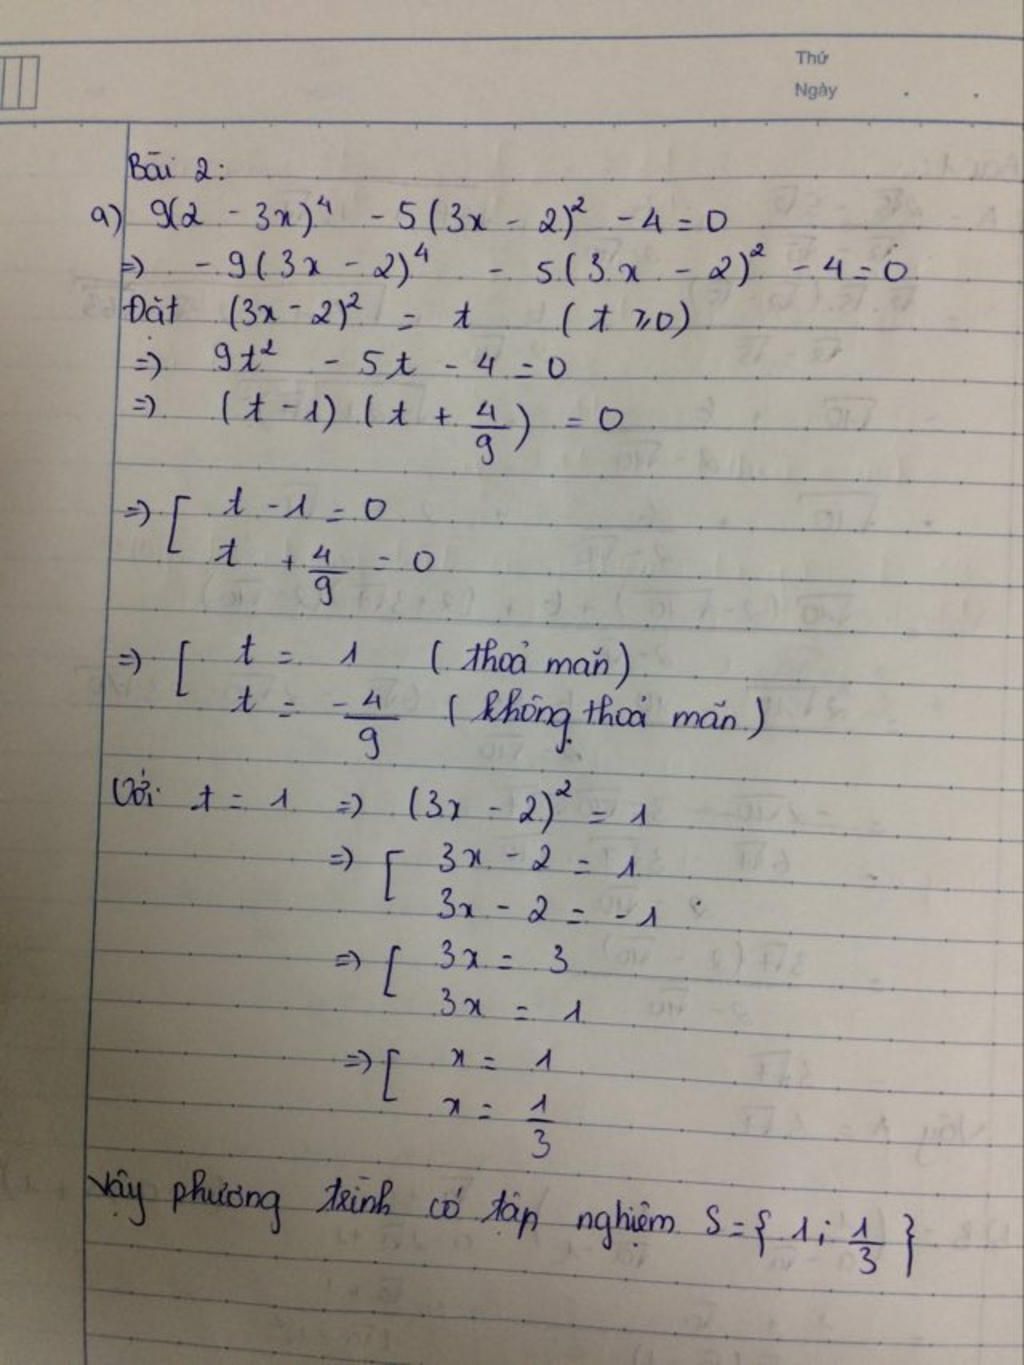 Thứ
Ngày
Bài 2:
a) 9(2 - 3x)⁴ - 5(3x - 2)² - 4 = 0
=) - 9(3x - 2)⁴ - 5(3x - 2)² - 4 = 0
Đặt (3x - 2)² = t (t ≥ 0)
=) 9t² - 5t - 4 = 0
=) (t - 1) (t + 4/9) = 0
=) [ t - 1 = 0
t + 4/9 = 0
=) [ t = 1 (thoả mãn)
t = -4/9 (không thoả mãn)
Với t = 1 =) (3x - 2)² = 1
=) [ 3x - 2 = 1
3x - 2 = -1
=) [ 3x = 3
3x = 1
=) [ x = 1
x = 1/3
Vậy phương trình có tập nghiệm S = { 1; 1/3 }